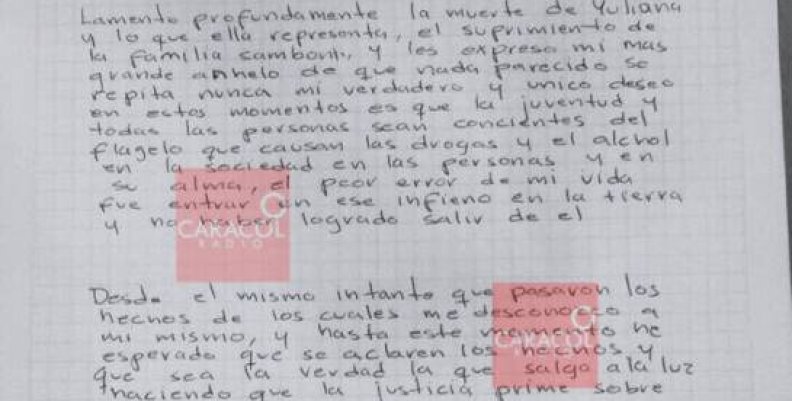 Lamento profundamente la muerte de Yuliana
y lo que ella representa, el suprimiento de
la familia samboni, y les expreso mi mas
grande anhelo de que nada parecido se
repita nunca mi verdadero y unico deseo
en estos momentos es que la juventud y
todas las personas sean concientes del
flagelo que causan las drogas y el alchol
en la sociedad en las personas y en
su alma, el peor error de mi vida
fue entrar en ese infieno en la tierra
y no haber logrado salir de el
CARACOL
RADIO
Desde el mismo intante que pasaron los
hechos de los cuales me desconozco a
mi mismo, y hasta este momento he
esperado que se aclaren los hechos y
que sea la verdad la que salga a la luz
haciendo que la justicia prime sobre
CARACOL